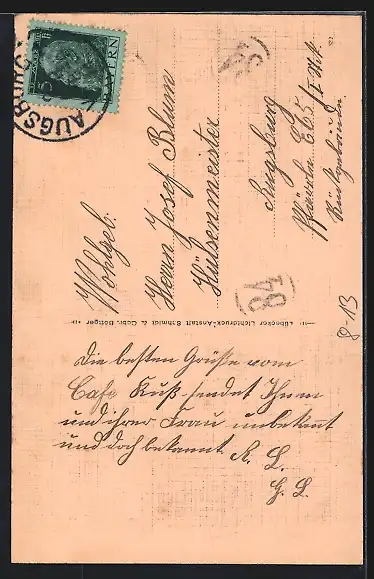 BAYERN
AUGSBURG
Wohlgeb.
Herrn Josef Blum
Hülsenmeister
Augsburg
84
8.13
Lübecker Lichtdruck-Anstalt Schmidt & Gebr. Böttger
Die besten Grüße vom
Cafe Kuß sendet Ihnen
und ihrer Frau unbekant
und doch bekannt R. L.
G. L.